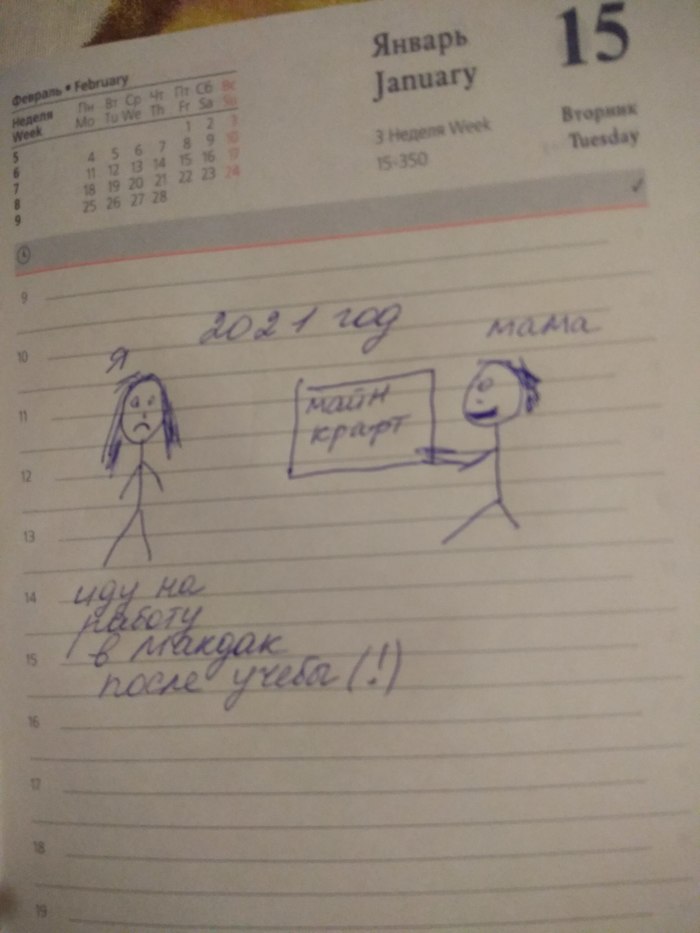 Январь
January
15
Вторник
Tuesday
3 Неделя Week
15-350
Февраль • February
Неделя Пн Вт Ср Чт Пт Сб Вс
Week Mo Tu We Th Fr Sa Su
5 1 2 3
6 4 5 6 7 8 9 10
7 11 12 13 14 15 16 17
8 18 19 20 21 22 23 24
9 25 26 27 28
9
2021 год
мама
10
я
майн
11
крафт
12
13
14
иду на
работу
в макдак
15
после учебы (!)
16
17
18
19